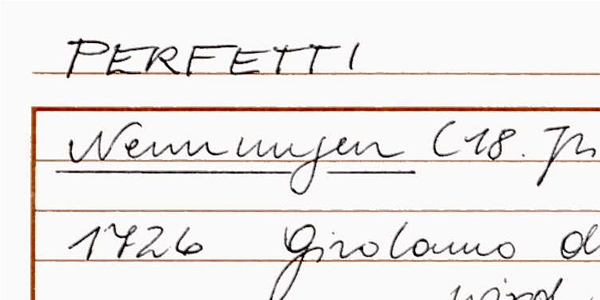 PERFETTI
Nennungen (18. Jh
1726 Girolamo d
wird